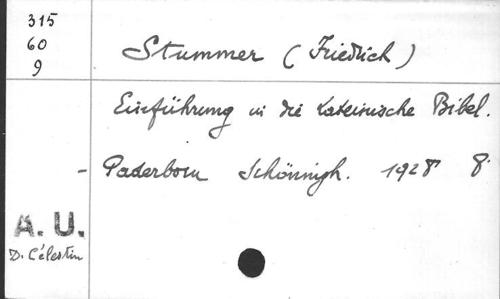 315
60
9
Stummer (Friedrich)
Einführung in die Lateinische Bibel.
- Paderborn Schöningh. 1928 8.
A. U.
D. Célestin